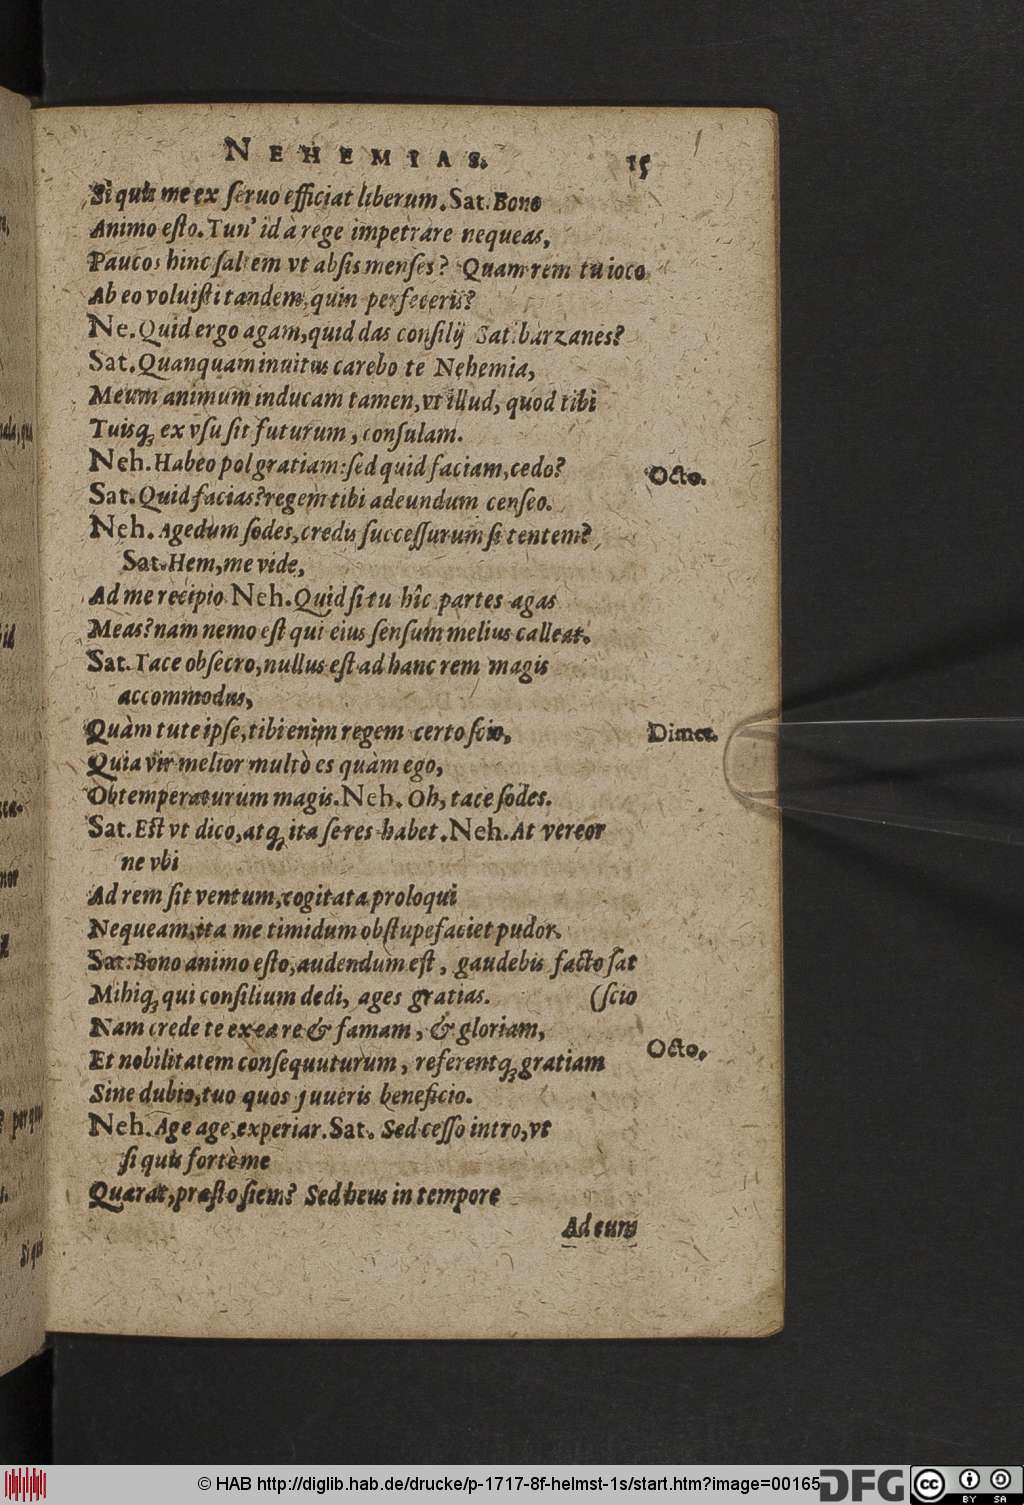 NEHEMIAS. 15
Si quis me ex ſeruo efficiat liberum. Sat. Bono
Animo eſto. Tun' id à rege impetrare nequeas,
Paucos hinc ſaltem vt abſis menſes? Quam rem tu ioco
Ab eo voluiſti tandem, quin perfeceris?
Ne. Quid ergo agam, quid das conſilij Satibarzanes?
Sat. Quanquam inuitus carebo te Nehemia,
Meum animum inducam tamen, vt illud, quod tibi
Tuisq́ꝫ ex vſu ſit futurum, conſulam.
Neh. Habeo pol gratiam: ſed quid faciam, cedo? Octo.
Sat. Quid facias? regem tibi adeundum cenſeo.
Neh. Agedum ſodes, credis ſucceſſurum ſi tentem?
Sat. Hem, me vide,
Ad me recipio Neh. Quid ſi tu hîc partes agas
Meas? nam nemo eſt qui eius ſenſum melius calleat.
Sat. Tace obſecro, nullus eſt ad hanc rem magis
accommodus,
Quàm tute ipſe, tibi enim regem certo ſcio, Dimet.
Quia vir melior multò es quàm ego,
Obtemperaturum magis. Neh. Oh, tace ſodes.
Sat. Eſt vt dico, atq́ꝫ ita ſe res habet. Neh. At vereor
ne vbi
Ad rem ſit ventum, cogitata proloqui
Nequeam, ita me timidum obſtupefaciet pudor.
Sat. Bono animo eſto, audendum eſt, gaudebis facto ſat
Mihiq́ꝫ qui conſilium dedi, ages gratias. (ſcio
Nam crede te ex ea re & famam, & gloriam,
Et nobilitatem conſequuturum, referentq́ꝫ gratiam Octo,
Sine dubio, tuo quos juueris beneficio.
Neh. Age age, experiar. Sat. Sed ceſſo intro, vt
ſi quis fortè me
Quærat, præſto ſiem? Sed heus in tempore
Ad eum
© HAB http://diglib.hab.de/drucke/p-1717-8f-helmst-1s/start.htm?image=00165
DFG
cc BY SA